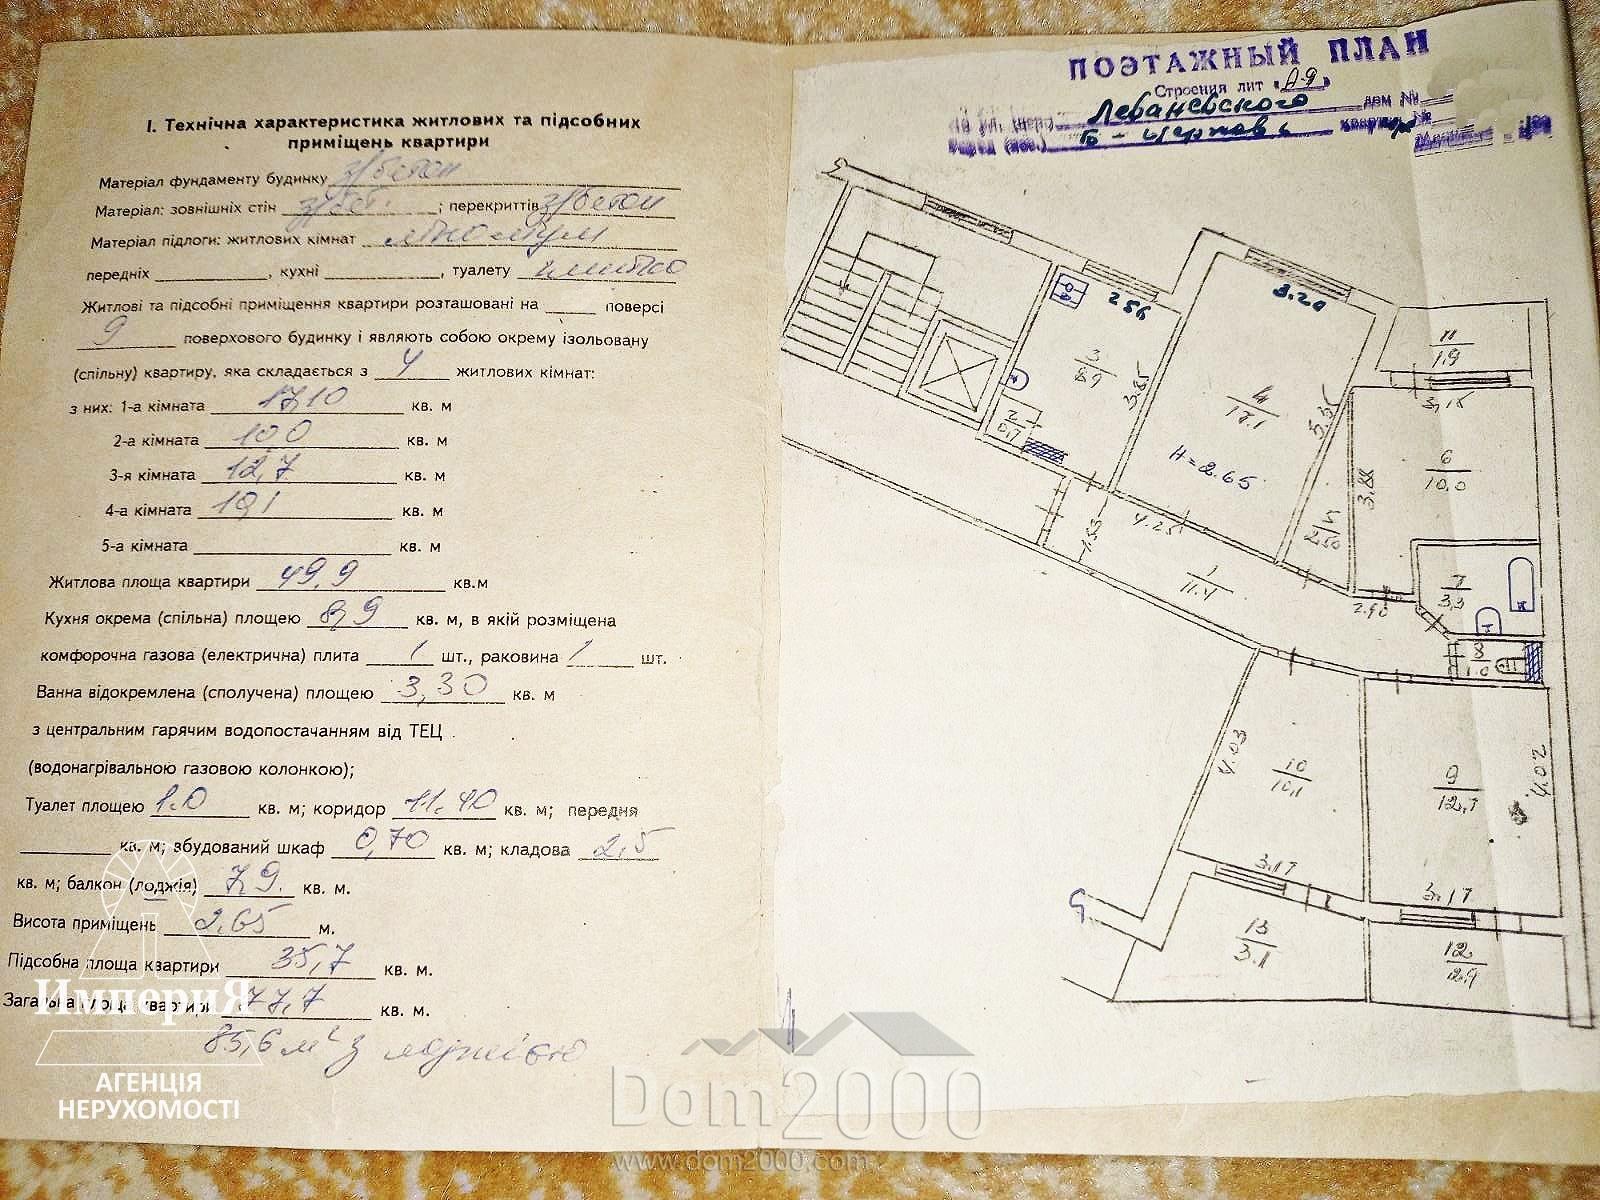 І. Технічна характеристика житлових та підсобних
приміщень квартири
Матеріал фундаменту будинку з/бетон
Матеріал: зовнішніх стін з/бет. ; перекриттів з/бетон
Матеріал підлоги: житлових кімнат ліноліум
передніх , кухні , туалету плитка
Житлові та підсобні приміщення квартири розташовані на поверсі
9 поверхового будинку і являють собою окрему ізольовану
(спільну) квартиру, яка складається з 4 житлових кімнат:
з них: 1-а кімната 17,10 кв. м
2-а кімната 10,0 кв. м
3-я кімната 12,7 кв. м
4-а кімната 10,1 кв. м
5-а кімната кв. м
Житлова площа квартири 49,9 кв.м
Кухня окрема (спільна) площею 8,9 кв. м, в якій розміщена
комфорочна газова (електрична) плита 1 шт., раковина 1 шт.
Ванна відокремлена (сполучена) площею 3,30 кв. м
з центральним гарячим водопостачанням від ТЕЦ
(водонагрівальною газовою колонкою);
Туалет площею 1.0 кв. м; коридор 11.40 кв. м; передня
кв. м; вбудований шкаф 0,70 кв. м; кладова 2,5
кв. м; балкон (лоджія) 7,9. кв. м.
Висота приміщень 2.65 м.
Підсобна площа квартири 35,7 кв. м.
Загальна площа квартири 77,7 кв. м.
85,6 м² з лоджією
ИмпериЯ
АГЕНЦІЯ
НЕРУХОМОСТІ
ПОЭТАЖНЫЙ ПЛАН
Строения лит "А-9"
Леваневского дом №
Б-Церковь квартира №
2.56
3.20
3
8.9
3.85
4
17.1
5.35
H=2.65
11
1.9
3,15
6
10.0
3.88
2
0.7
5
2.50
1.53
4.25
1
11.4
2.90
7
3.3
8
1.0
4.03
10
10.1
9
12.7
4.02
3.17
3.17
13
3.1
12
2.9
Dom2000
www.dom2000.com